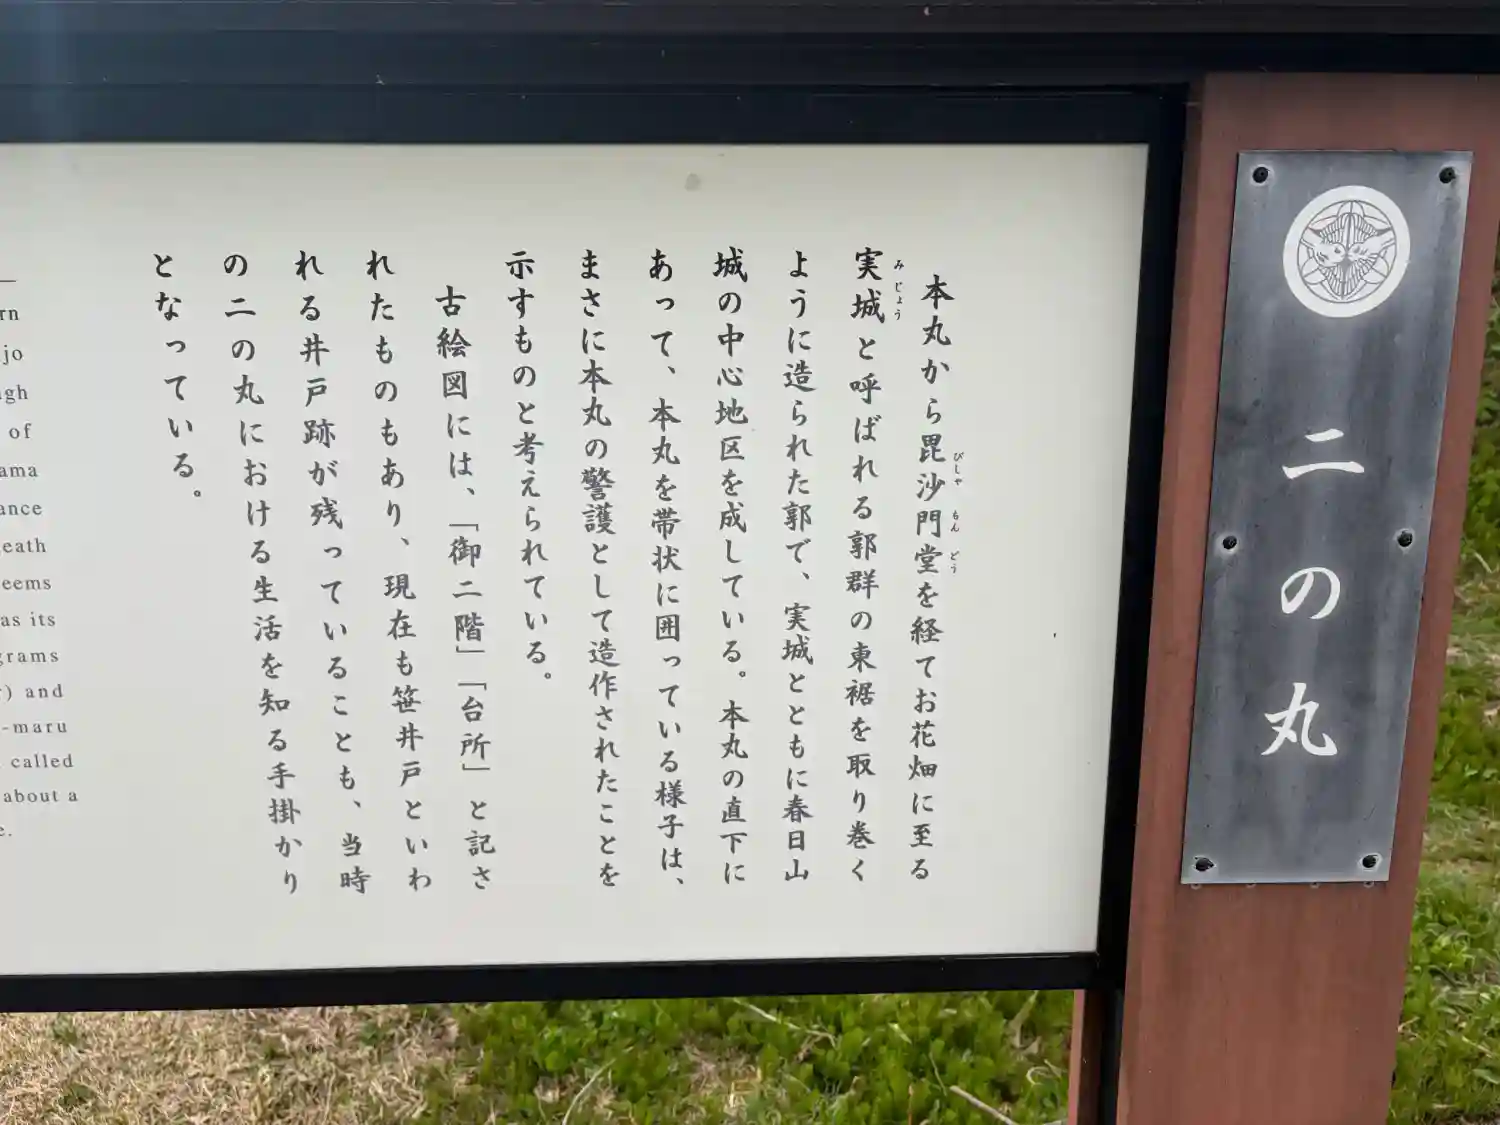 二の丸
本丸から毘沙門堂を経てお花畑に至る
びしゃ もん どう
実城と呼ばれる郭群の東裾を取り巻く
みじょう
ように造られた郭で、実城とともに春日山
城の中心地区を成している。本丸の直下に
あって、本丸を帯状に囲っている様子は、
まさに本丸の警護として造作されたことを
示すものと考えられている。
古絵図には、「御二階」「台所」と記さ
れたものもあり、現在も笹井戸といわ
れる井戸跡が残っていることも、当時
の二の丸における生活を知る手掛かり
となっている。
rn
jo
gh
of
ama
ance
eath
eems
as its
grams
) and
-maru
called
about a
e.